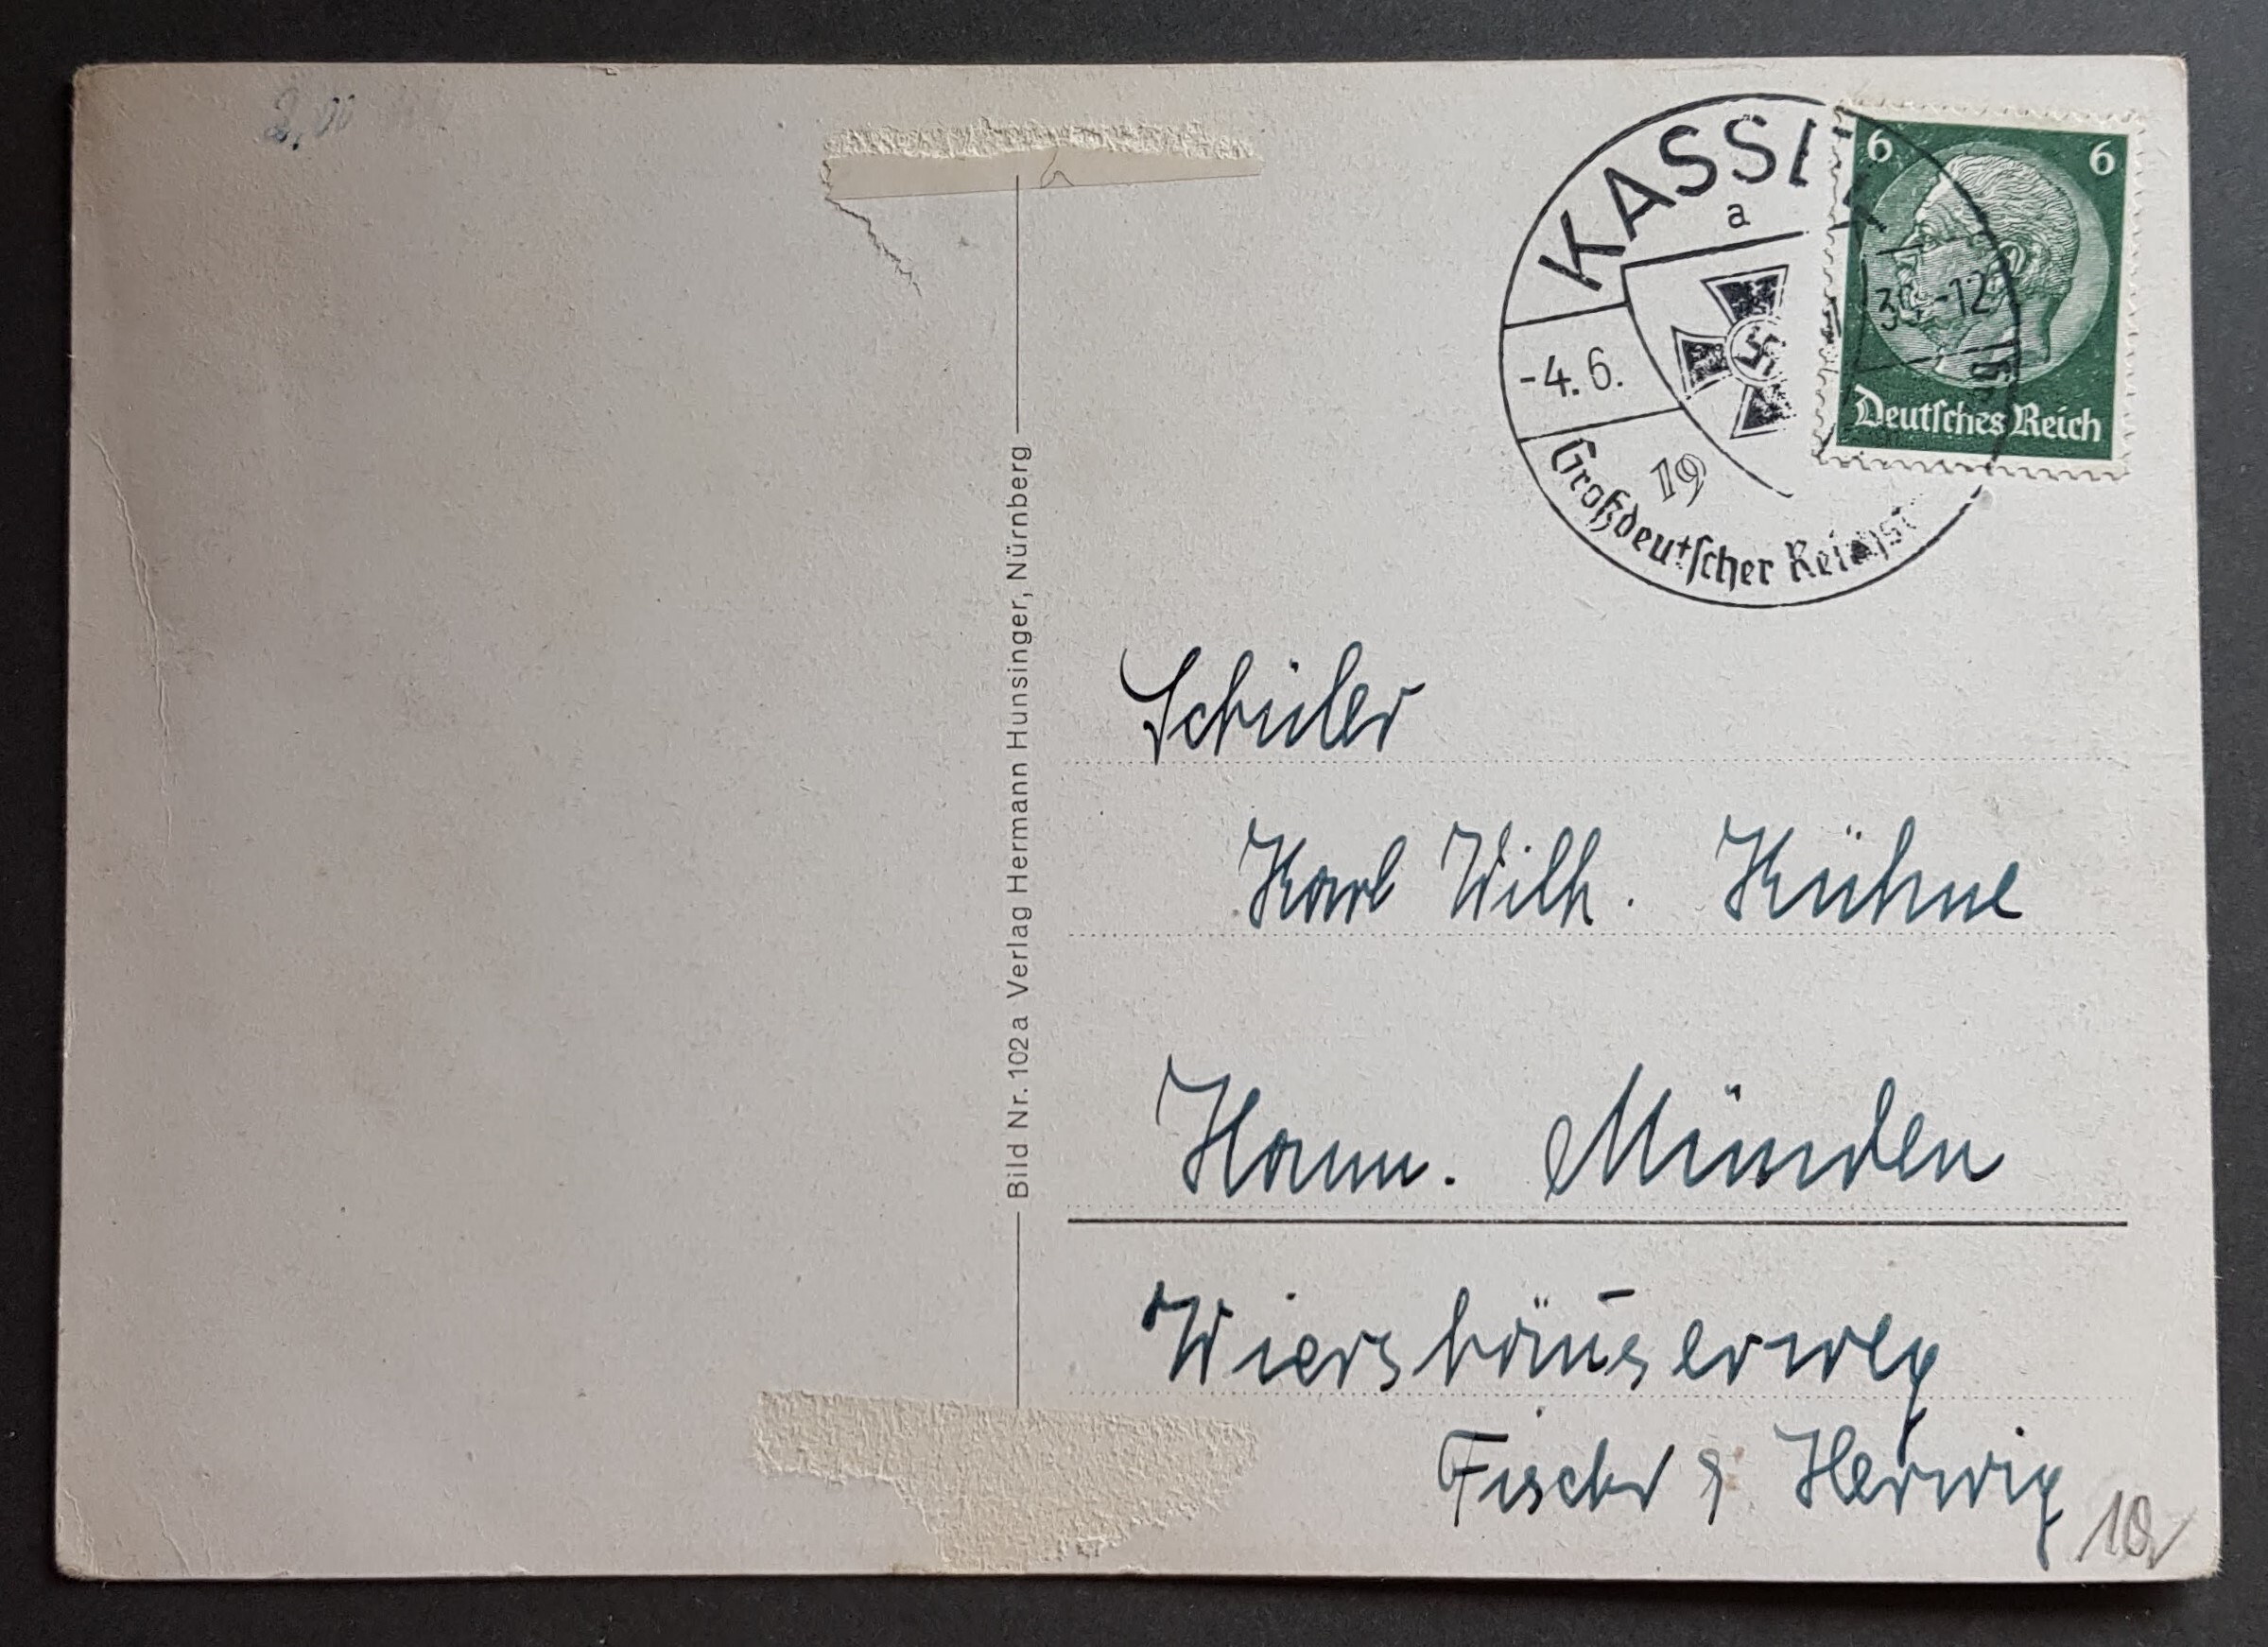 2,00
KASSEL
a
-4.6.
39.-12
19
Großdeutscher Reichst
6 6
Deutsches Reich
Bild Nr. 102a Verlag Hermann Hunsinger, Nürnberg
Schüler
Karl Wilh. Kühne
Hann. Münden
Wiershäuserweg
Fischer & Herwig
10